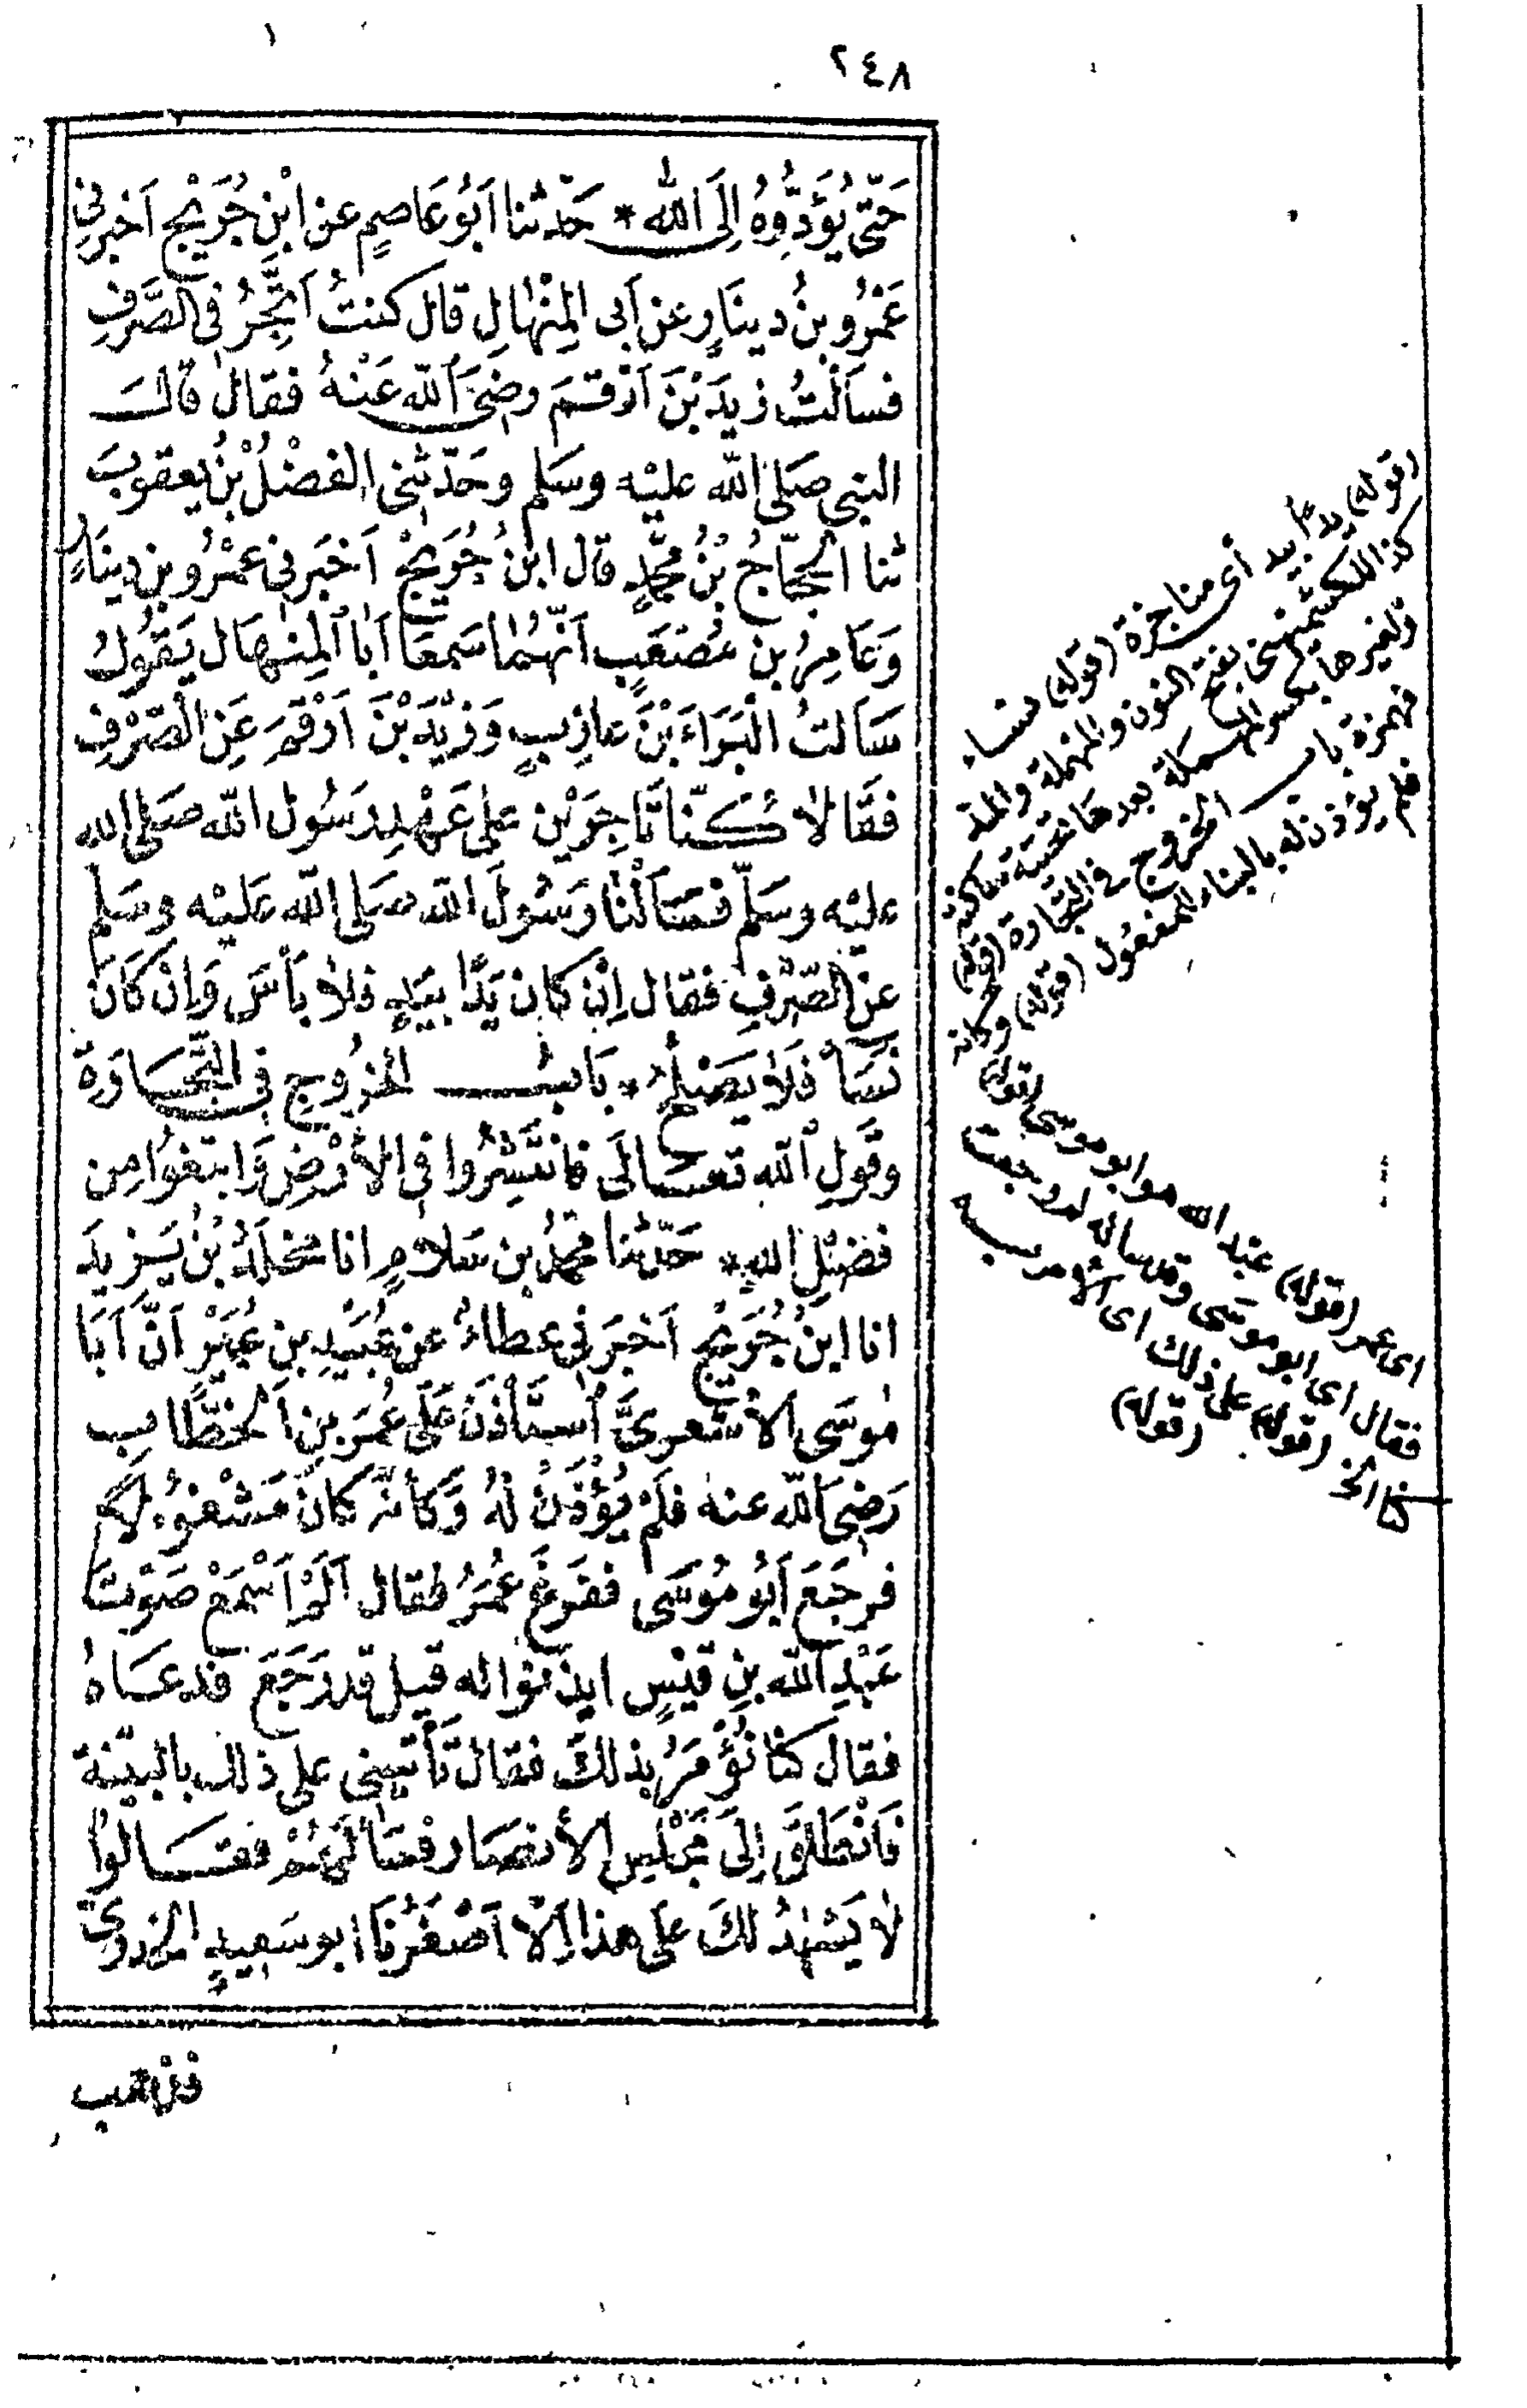 ٢٤٨
حَتّى يُؤَدُّوهُ إِلَى اللّٰه * حَدّثنا أَبُو عَاصِمٍ عن ابْنِ جُرَيْجٍ أَخبرنِي
عَمْرُو بنُ دينَارٍ عن أَبى المِنْهَالِ قال كنتُ أَتَّجِرُ فى الصَّرفِ
فسَأَلْتُ زيدَ بْنَ أَرْقمَ رضىَ اللّٰه عَنْهُ فقال قالَ
النبى صَلى اللّٰه عليْه وسَلم وحَدّثنى الفضْلُ بْنُ يعقوبَ
ثنا الحجّاجُ بْنُ محمَّدٍ قال ابنُ جُرَيْجٍ أَخبَرنى عمْرُو بن دينَارٍ
وَعَامِرُ بن مُصْعَبٍ أَنّهُمَا سَمعَا أَبا المِنهَال يَقُولُ
سَأَلتُ الْبَرَاءَ بْنَ عازِبٍ وَزيْدَ بْنَ أَرْقَمَ عَنِ الصّرْفِ
فقَالاَ كُنّا تَاجِرَيْنِ على عَهْدِ رَسُول اللّٰه صَلى اللّٰه
عليْه وسَلّم فسَأَلْنَا رَسُولَ اللّٰه صَلى اللّٰه عَليْه وسَلم
عَنِ الصّرْفِ فقال إِنْ كان يَدًا بيَدٍ فلاَ بَأْسَ وَإِنْ كَانَ
نَسَأً فَلاَ يَصْلُحُ * بَابُ الخرُوجِ فى التّجَارَة
وقَولِ اللّٰه تعَالَى فانتَشِرُوا فى الأَرْضِ وَابتغوُا مِن
فضْلِ اللّٰهِ * حَدّثنا محمّدُ بن سَلاَمٍ انا مخْلَدُ بْنُ يَزيدَ
انا ابنُ جُرَيْجٍ أَخبَرَنى عطاءُ عن عُبَيْدِ بنِ عُمَيْرٍ أَنّ أَبَا
مُوسَى الأَشعرىَّ اسْتَأْذَنَ عَلَى عُمَرَ بنِ الخطَّابِ
رَضىَ اللّٰه عنه فَلَمْ يُؤْذَنْ لهُ وَكأَنّهُ كانَ مَشْغوُلاً
فرجَعَ أَبُو مُوسَى ففرَغَ عُمَرُ فقال أَلَمْ أَسْمَعْ صَوْتَ
عَبْدِ اللّٰه بنِ قيْسٍ ايذَنوا له قيل قد رَجَعَ فدعَاهُ
فقالَ كنّا نُؤْمَرُ بذلكَ فقال تأْتينى على ذلك بالبيّنة
فَانْطَلقَ إِلَى مَجْلِسِ الأَنصَار فسَأَلَهُمْ فقَالوُا
لاَ يَشْهَدُ لكَ عَلى هذا إِلاّ أَصْغَرُنَا ابو سَعيدٍ الخدرىّ
فذهب
(قوله) يدا بيد أى مناجزة (قوله) نساء
كذا للكشميهنى بفتح النون والمهملة والمد
ولغيرها بكسر المهملة بعدها تحتية ساكنة
فهمزة باب الخروج فى التجارة (قوله)
فلم يؤذن له بالبناء للمفعول (قوله) وكانه
اى عمر (قوله) عبد الله هو ابو موسى (قوله)
فقال اى ابو موسى وقد ساله لم رجعت
كنا الخ (قوله) على ذلك اى الامر به
(قوله)